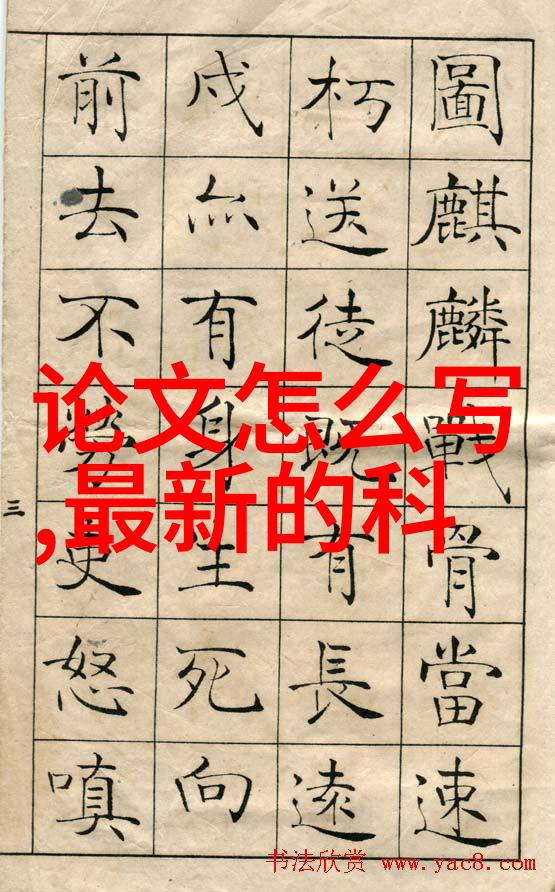 圖麒麟戰骨當速
朽送徒既有長遠
戍亦有身生死向
前去不勞吏怒嗔
三
论文怎么写
,最新的科
书法欣赏 www.yac8.com